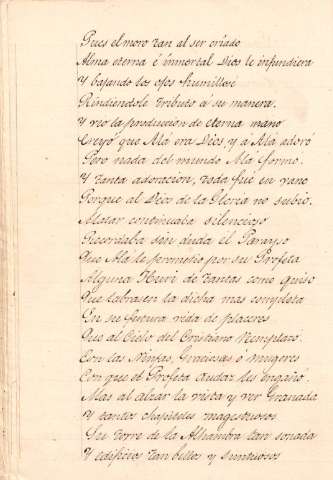 Pues el moro tan al ser criado
Alma eterna é inmortal Dios le infundiera
Y bajando los ojos humillose
Rindiendole tributo a su manera.
Y vio la produccion de eterna mano
Creyó que Alá era Dios, y á Alá adoró
Pero nada del mundo Ala formo.
Y tanta adoracion, toda fué en vano
Porque al Dios de la Gloria no subio.
Matar continuaba silencioso
Recordaba sin duda el Parayso
Que Alá le prometio por su Profeta
Alguna Huri de tantas como quiso
Que labrasen la dicha mas completa
En su futura vida de placeres
Que al Cielo del Cristiano
Con las Ninfas, Gracias o mugeres
Con que el Profeta audaz les engañó.
Mas al alzar la vista y ver Granada
Y tantos chapiteles magestuosos
Su torre de la Alhambra tan sonada
Y edificios tan bellos y suntuosos